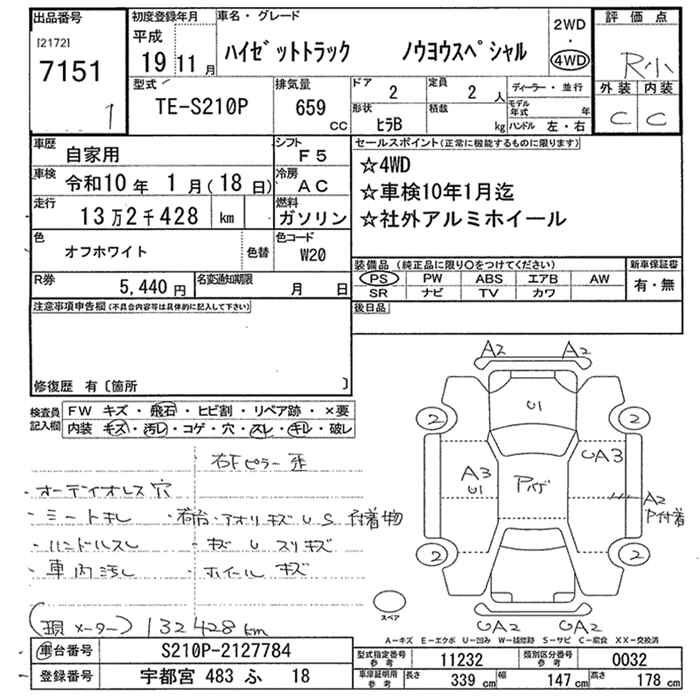 出品番号
[2172]
7151
1
初度登録年月
平成
19 11月
車名・グレード
ハイゼットトラック ノウヨウスペシャル
2WD
・
4WD
評価点
R小
外装 内装
C C
型式
TE-S210P
排気量
659
CC
ドア
2
定員
2 人
形状
ヒラB
積載
kg
ディーラー・並行
モデル年式 年
ハンドル 左・右
車歴
自家用
シフト
F5
車検 令和10年 1月(18日)
冷房
AC
走行
13万2千428 km
燃料
ガソリン
色
オフホワイト
色替
色コード
W20
R券
5,440円
名変通知期限
月 日
セールスポイント(正常に機能するものに限ります)
☆4WD
☆車検10年1月迄
☆社外アルミホイール
装備品(純正品に限り〇をつけてください)
PS PW ABS エアB AW
SR ナビ TV カワ
新車保証書
有・無
後日品
注意事項申告欄(不具合内容等は具体的に記入して下さい)
修復歴 有〔箇所 〕
検査員
記入欄
FW キズ・飛石・ヒビ割・リペア跡・×要
内装 キズ・汚レ・コゲ・穴・スレ・キレ・破レ
右Fピラー歪
・オーディオレス穴
・シートキレ
・荷台・アオリキズUS付着物
・ハンドルスレ
・キズUスリキズ
・車内汚レ
・ホイールキズ
(現メーター)132428km
A2 A2
U1
2 2
A3
U1
UA3
A2
P付着
2 2
UA2 UA2
スペア
A-キズ E-エクボ U-凹み W-補修跡 S-サビ C-腐食 XX-交換済
車台番号
S210P-2127784
登録番号
宇都宮 483 ふ 18
型式指定番号
参考
11232
類別区分番号
参考
0032
車庫証明用
参考
長さ 339 cm
幅 147 cm
高さ 178 cm